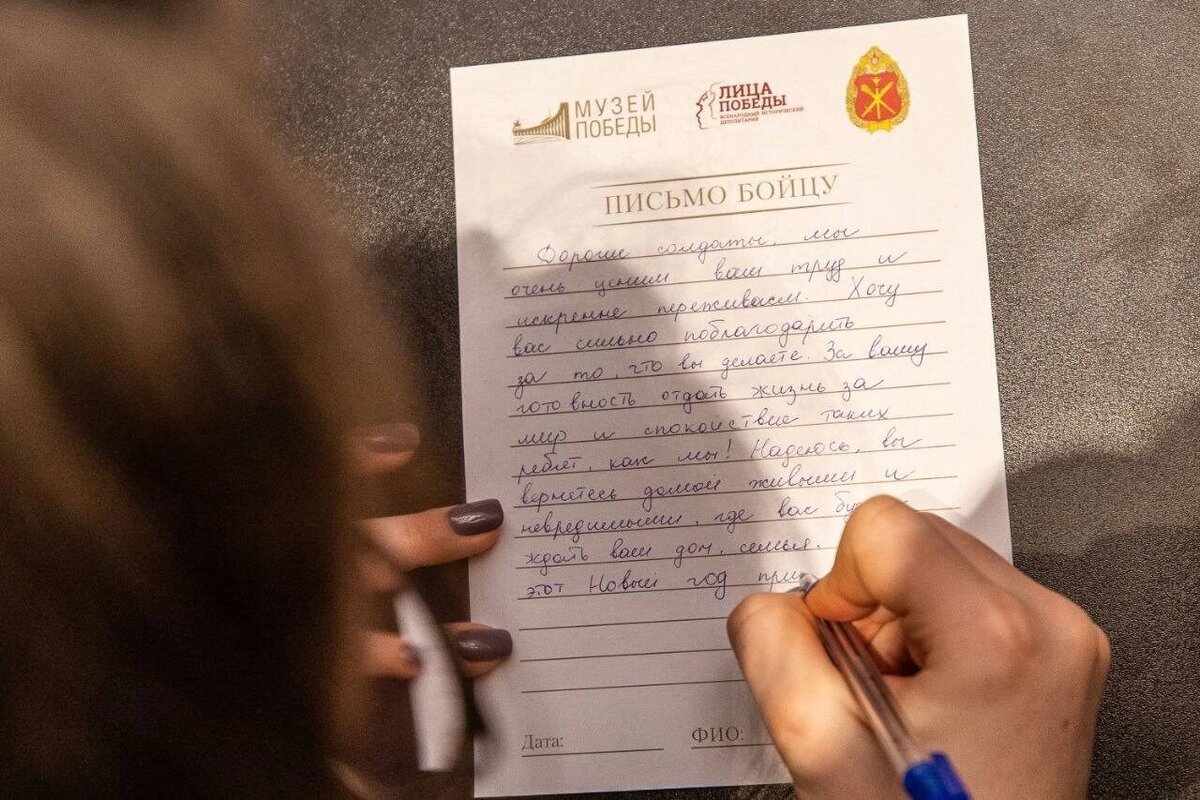 МУЗЕЙ
ПОБЕДЫ
ЛИЦА
ПОБЕДЫ
ВСЕНАРОДНЫЙ ИСТОРИЧЕСКИЙ
ДЕПОЗИТАРИЙ
ПИСЬМО БОЙЦУ
Дорогие солдаты, мы
очень ценим ваш труд и
искренне переживаем. Хочу
вас сильно поблагодарить
за то, что вы делаете. За вашу
готовность отдать жизнь за
мир и спокойствие таких
ребят, как мы! Надеюсь, вы
вернетесь домой живыми и
невредимыми, где вас
ждать ваш дом, семья.
этот Новый год
Дата:
ФИО: